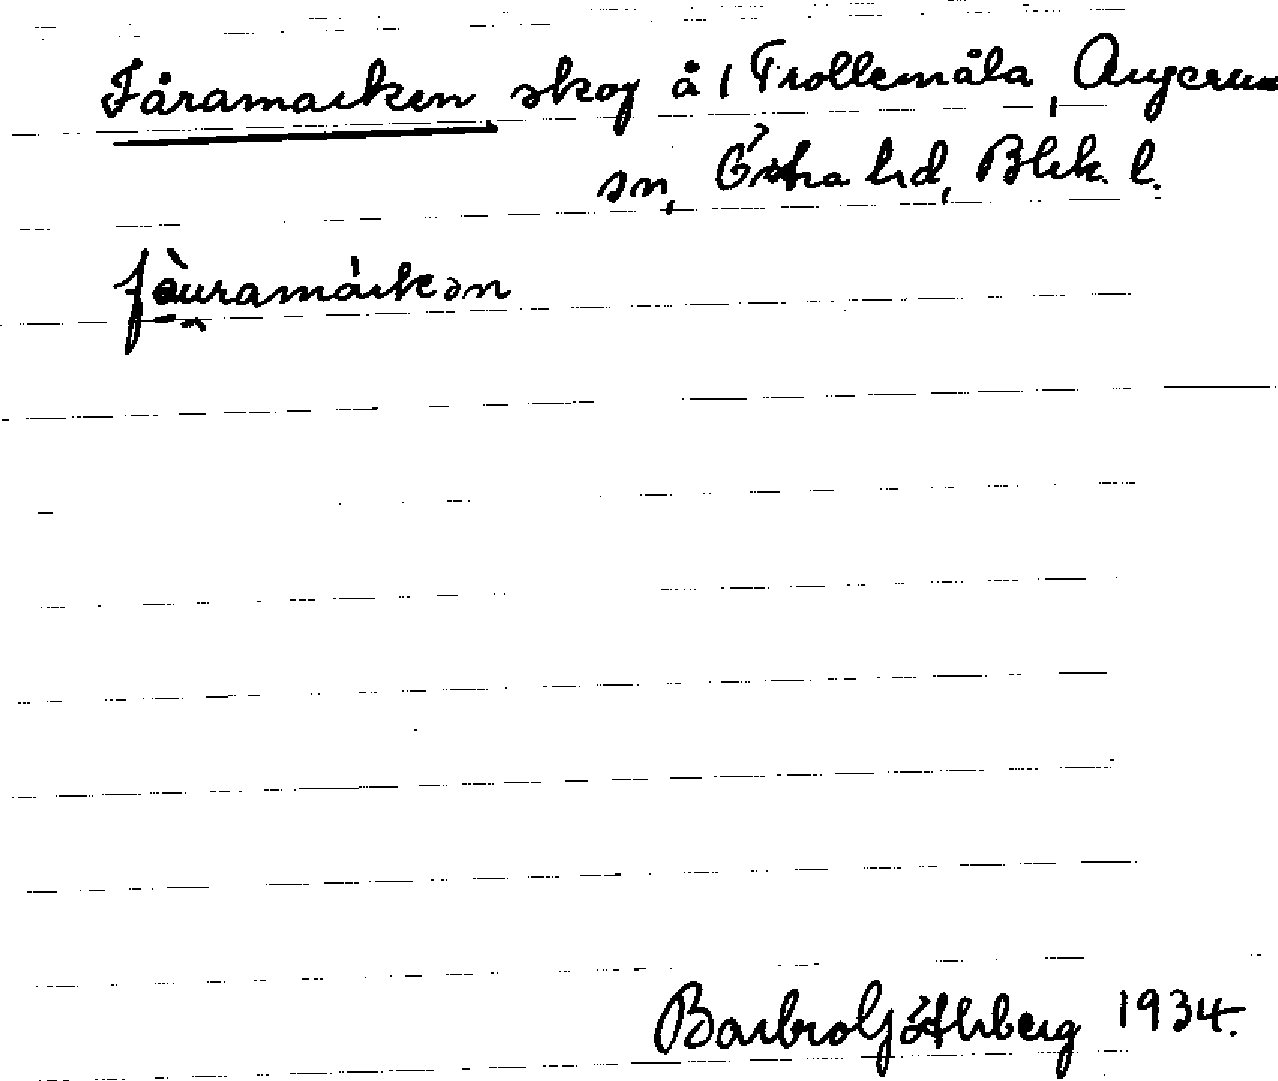 Fåramarken, skog å / Trollemåla, Augerum
sn, Östra hd, Blek. l.
fə̀uramárkən
Barbro Göthberg 1934.